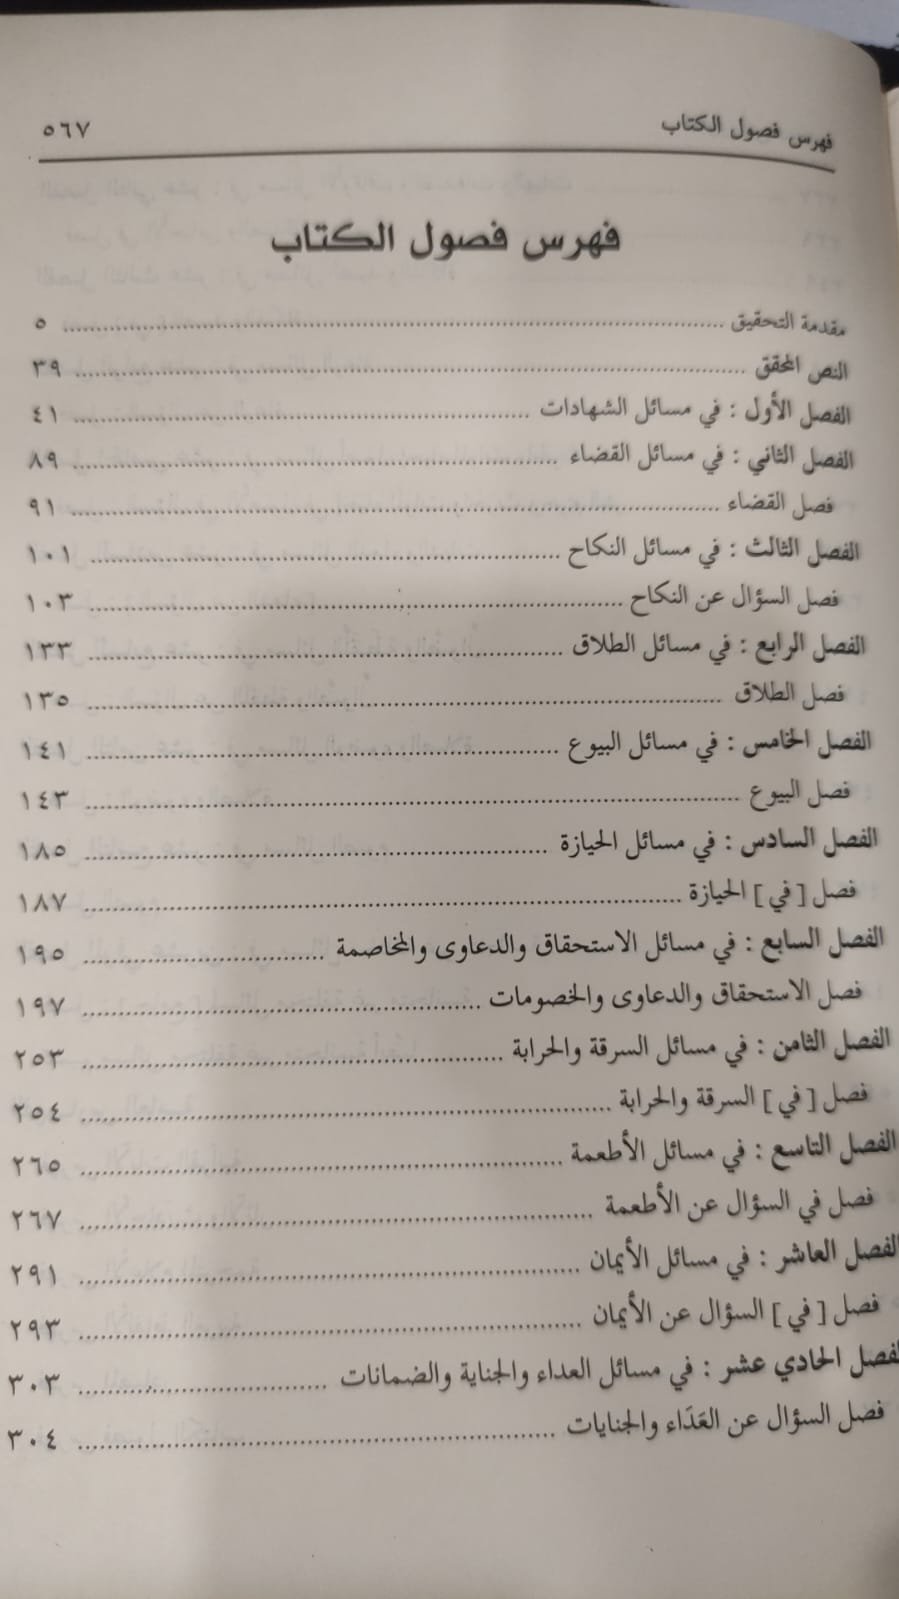 فهرس فصول الكتاب ٥٦٧
فهرس فصول الكتاب
مقدمة التحقيق ........ ٥
النص المحقق ........ ٣٩
الفصل الأول : في مسائل الشهادات ........ ٤١
الفصل الثاني : في مسائل القضاء ........ ٨٩
فصل القضاء ........ ٩١
الفصل الثالث : في مسائل النكاح ........ ١٠١
فصل السؤال عن النكاح ........ ١٠٣
الفصل الرابع : في مسائل الطلاق ........ ١٣٣
فصل الطلاق ........ ١٣٥
الفصل الخامس : في مسائل البيوع ........ ١٤١
فصل البيوع ........ ١٤٣
الفصل السادس : في مسائل الحيازة ........ ١٨٥
فصل [في] الحيازة ........ ١٨٧
الفصل السابع : في مسائل الاستحقاق والدعاوى والمخاصمة ........ ١٩٥
فصل الاستحقاق والدعاوى والخصومات ........ ١٩٧
الفصل الثامن : في مسائل السرقة والحرابة ........ ٢٥٣
فصل [في] السرقة والحرابة ........ ٢٥٤
الفصل التاسع : في مسائل الأطعمة ........ ٢٦٥
فصل في السؤال عن الأطعمة ........ ٢٦٧
الفصل العاشر : في مسائل الأيمان ........ ٢٩١
فصل [في] السؤال عن الأيمان ........ ٢٩٣
الفصل الحادي عشر : في مسائل العداء والجناية والضمانات ........ ٣٠٣
فصل السؤال عن العَدَاء والجنايات ........ ٣٠٤